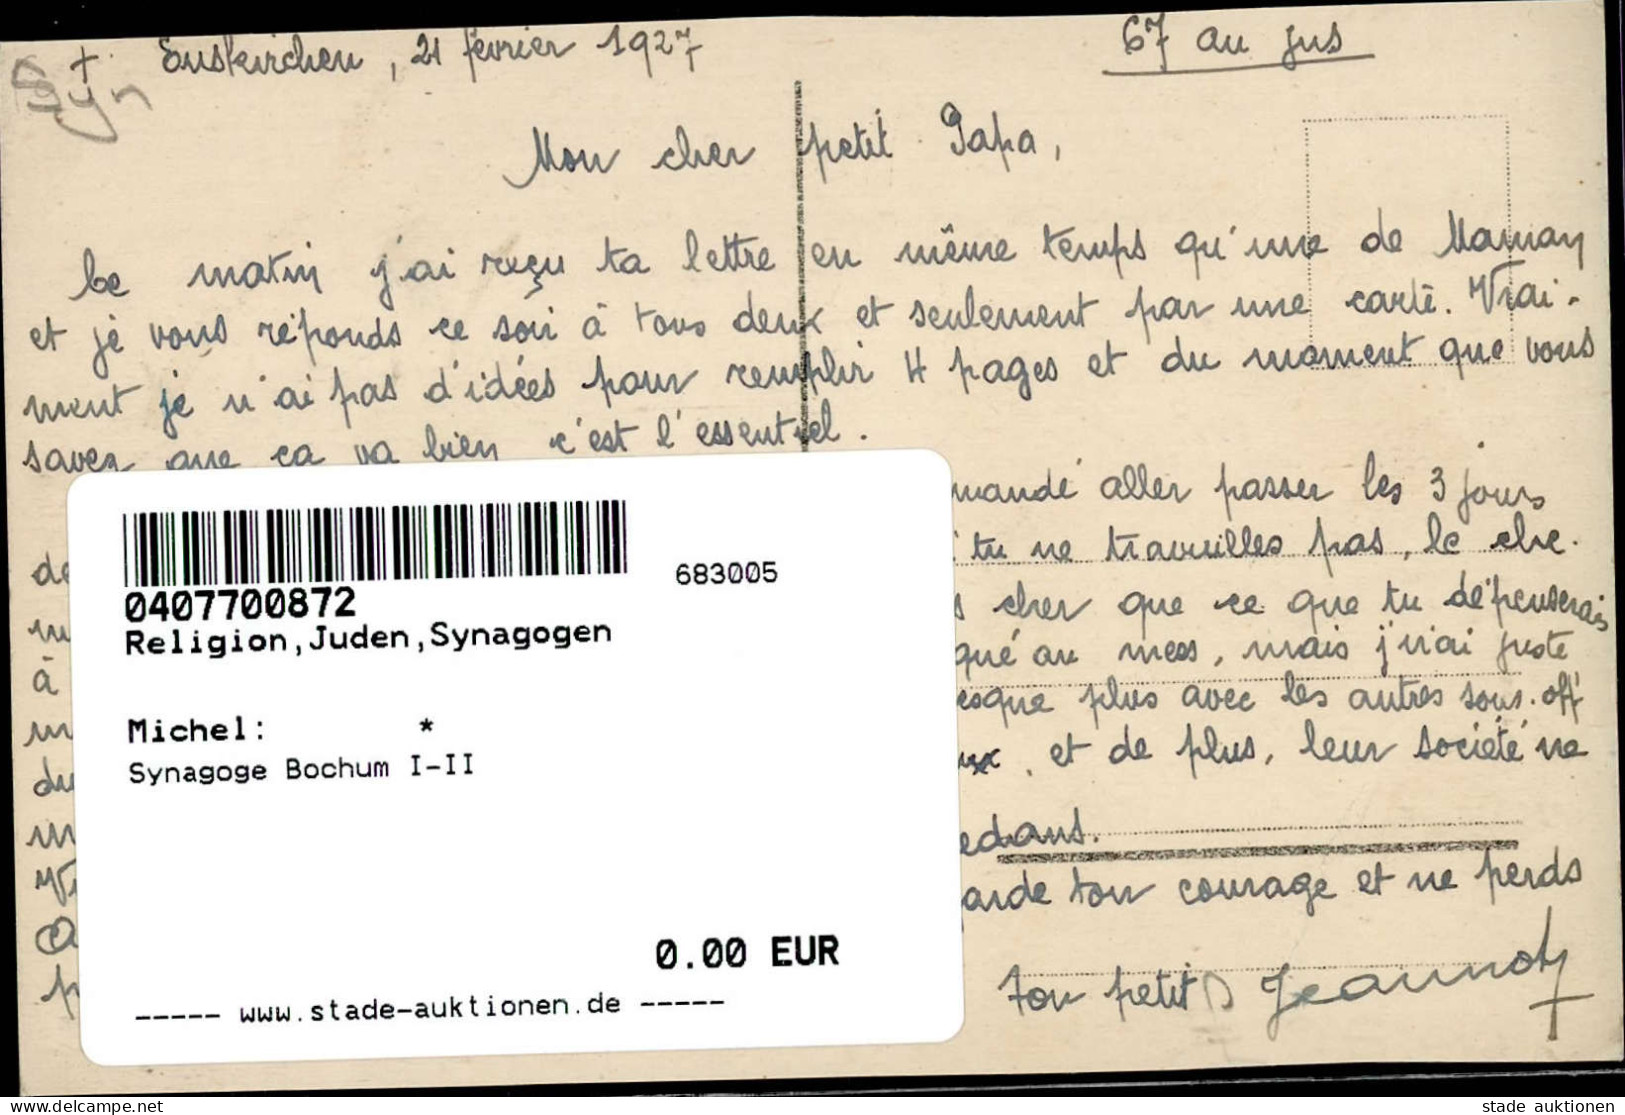 Syn
Euskirchen, 21 février 1927
67 au jus
Mon cher petit Papa,
Ce matin j'ai reçu ta lettre en même temps qu'une de Maman
et je vous réponds ce soir à tous deux et seulement par une carte. Vrai-
ment je n'ai pas d'idées pour remplir 4 pages et du moment que vous
savez que ça va bien c'est l'essentiel.
mandé aller passer les 3 jours
de
tu ne travailles pas, le che.
cher que ce que tu dépenserais
à
qué au mess, mais j'irai juste
esque plus avec les autres sous-off
du
et de plus, leur société ne
edans.
arde ton courage et ne perds
Ton petit Jeannot
0407700872
683005
Religion,Juden,Synagogen
Michel: *
Synagoge Bochum I-II
0.00 EUR
----- www.stade-auktionen.de -----
www.delcampe.net
stade auktionen